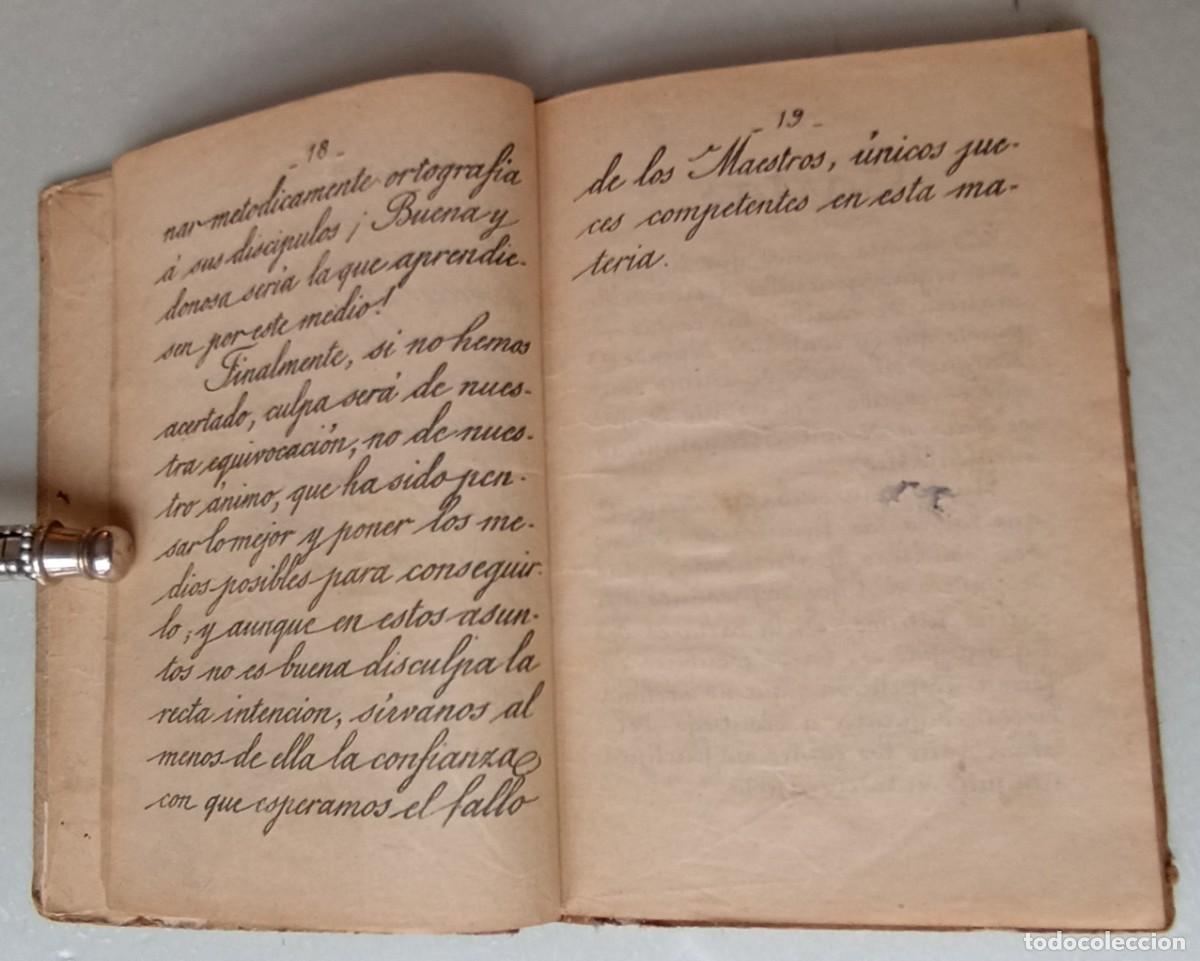 - 18 -
nar metodicamente ortografia
á sus discípulos ¡ Buena y
donosa sería la que aprendie-
sen por este medio!
Finalmente, si no hemos
acertado, culpa será de nues-
tra equivocación, no de nues-
tro ánimo, que ha sido pen-
sar lo mejor y poner los me-
dios posibles para conseguir-
lo; y aunque en estos asun-
tos no es buena disculpa la
recta intencion, sírvanos al
menos de ella la confianza
con que esperamos el fallo
- 19 -
de los Maestros, únicos jue-
ces competentes en esta ma-
teria.
todocoleccion